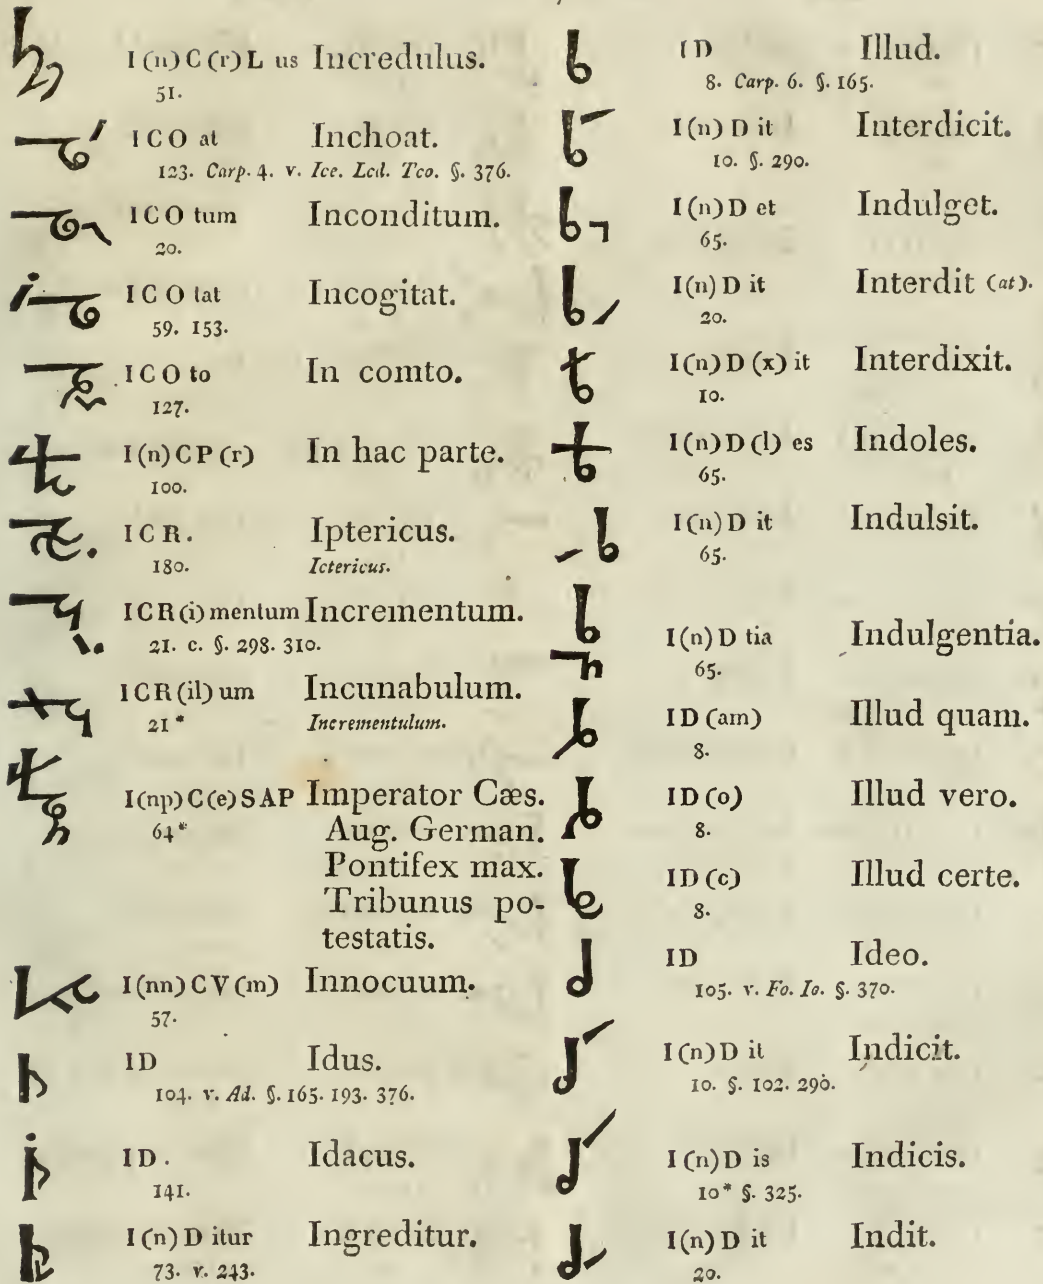 I(n)C(r)L us Incredulus.
51.
ICO at Inchoat.
123. Carp. 4. v. Ice. Lcd. Tco. §. 376.
ICO tum Inconditum.
20.
ICO tat Incogitat.
59. 153.
ICO to In comto.
127.
I(n)CP(r) In hac parte.
100.
ICR. Iptericus.
180. Ictericus.
ICR(i)mentum Incrementum.
21. c. §. 298. 310.
ICR(il)um Incunabulum.
21* Incrementulum.
I(np)C(e)SAP Imperator Cæs.
64* Aug. German.
Pontifex max.
Tribunus po-
testatis.
I(nn)CV(m) Innocuum.
57.
ID Idus.
104. v. Ad. §. 165. 193. 376.
ID. Idacus.
141.
I(n)D itur Ingreditur.
73. v. 243.
ID Illud.
8. Carp. 6. §. 165.
I(n)D it Interdicit.
10. §. 290.
I(n)D et Indulget.
65.
I(n)D it Interdit (at).
20.
I(n)D(x)it Interdixit.
10.
I(n)D(l)es Indoles.
65.
I(n)D it Indulsit.
65.
I(n)D tia Indulgentia.
65.
ID(am) Illud quam.
8.
ID(o) Illud vero.
8.
ID(c) Illud certe.
8.
ID Ideo.
105. v. Fo. Io. §. 370.
I(n)D it Indicit.
10. §. 102. 290.
I(n)D is Indicis.
10* §. 325.
I(n)D it Indit.
20.